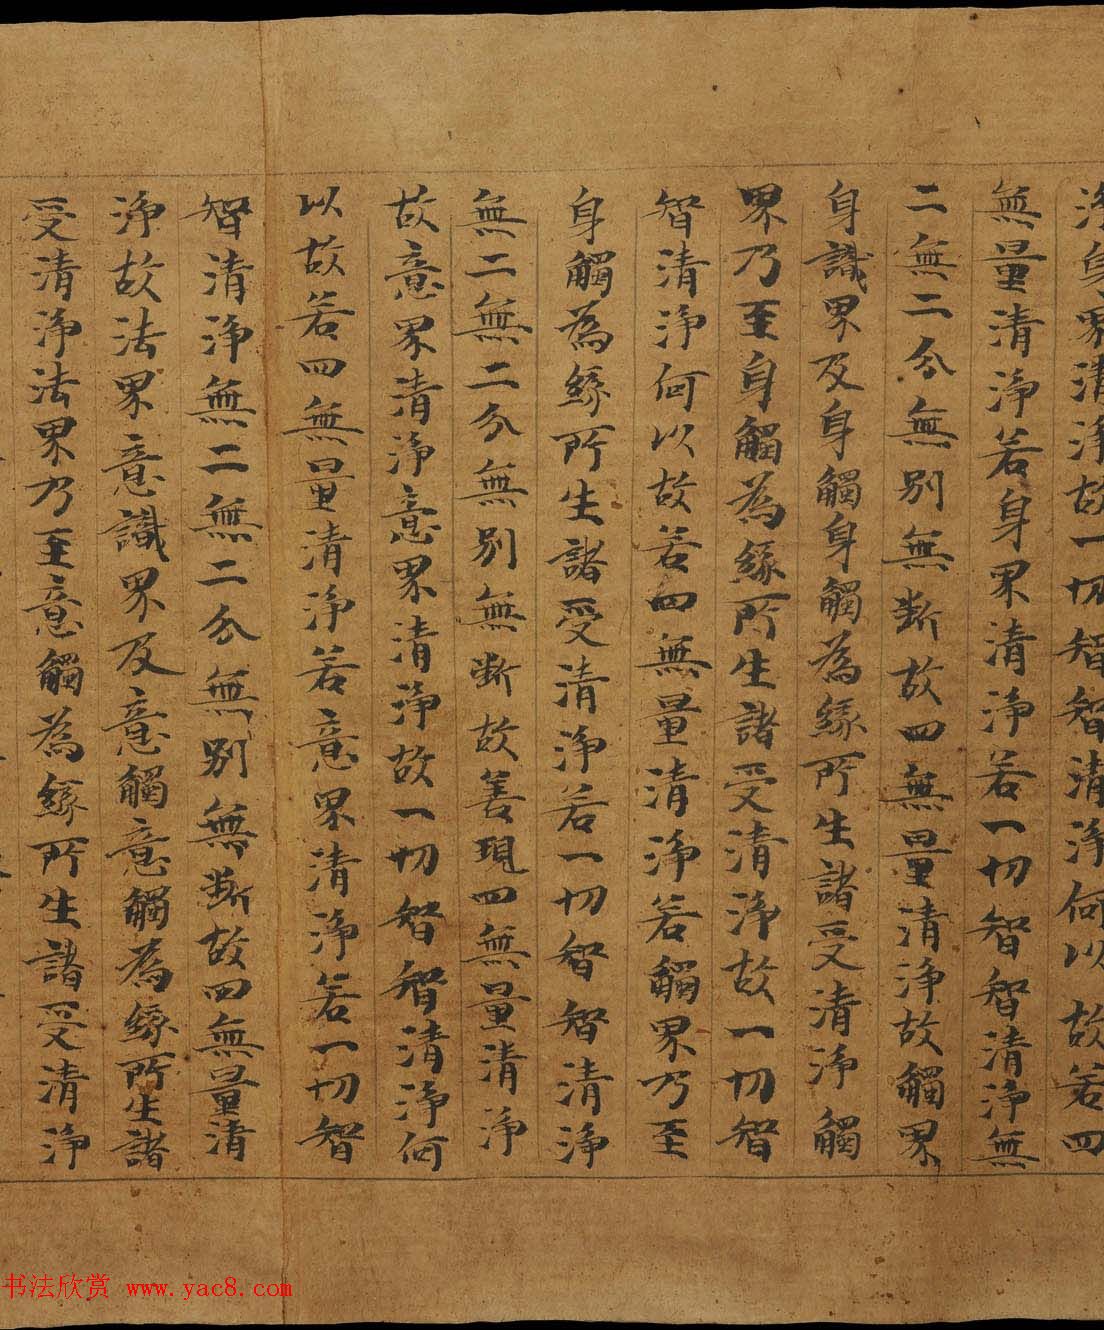 淨身界清淨故一切智智清淨何以故若四
無量清淨若身界清淨若一切智智清淨無
二無二分無別無斷故四無量清淨故觸界
身識界及身觸身觸為緣所生諸受清淨觸
界乃至身觸為緣所生諸受清淨故一切智
智清淨何以故若四無量清淨若觸界乃至
身觸為緣所生諸受清淨若一切智智清淨
無二無二分無別無斷故善現四無量清淨
故意界清淨意界清淨故一切智智清淨何
以故若四無量清淨若意界清淨若一切智
智清淨無二無二分無別無斷故四無量清
淨故法界意識界及意觸意觸為緣所生諸
受清淨法界乃至意觸為緣所生諸受清淨
书法欣赏 www.yac8.com